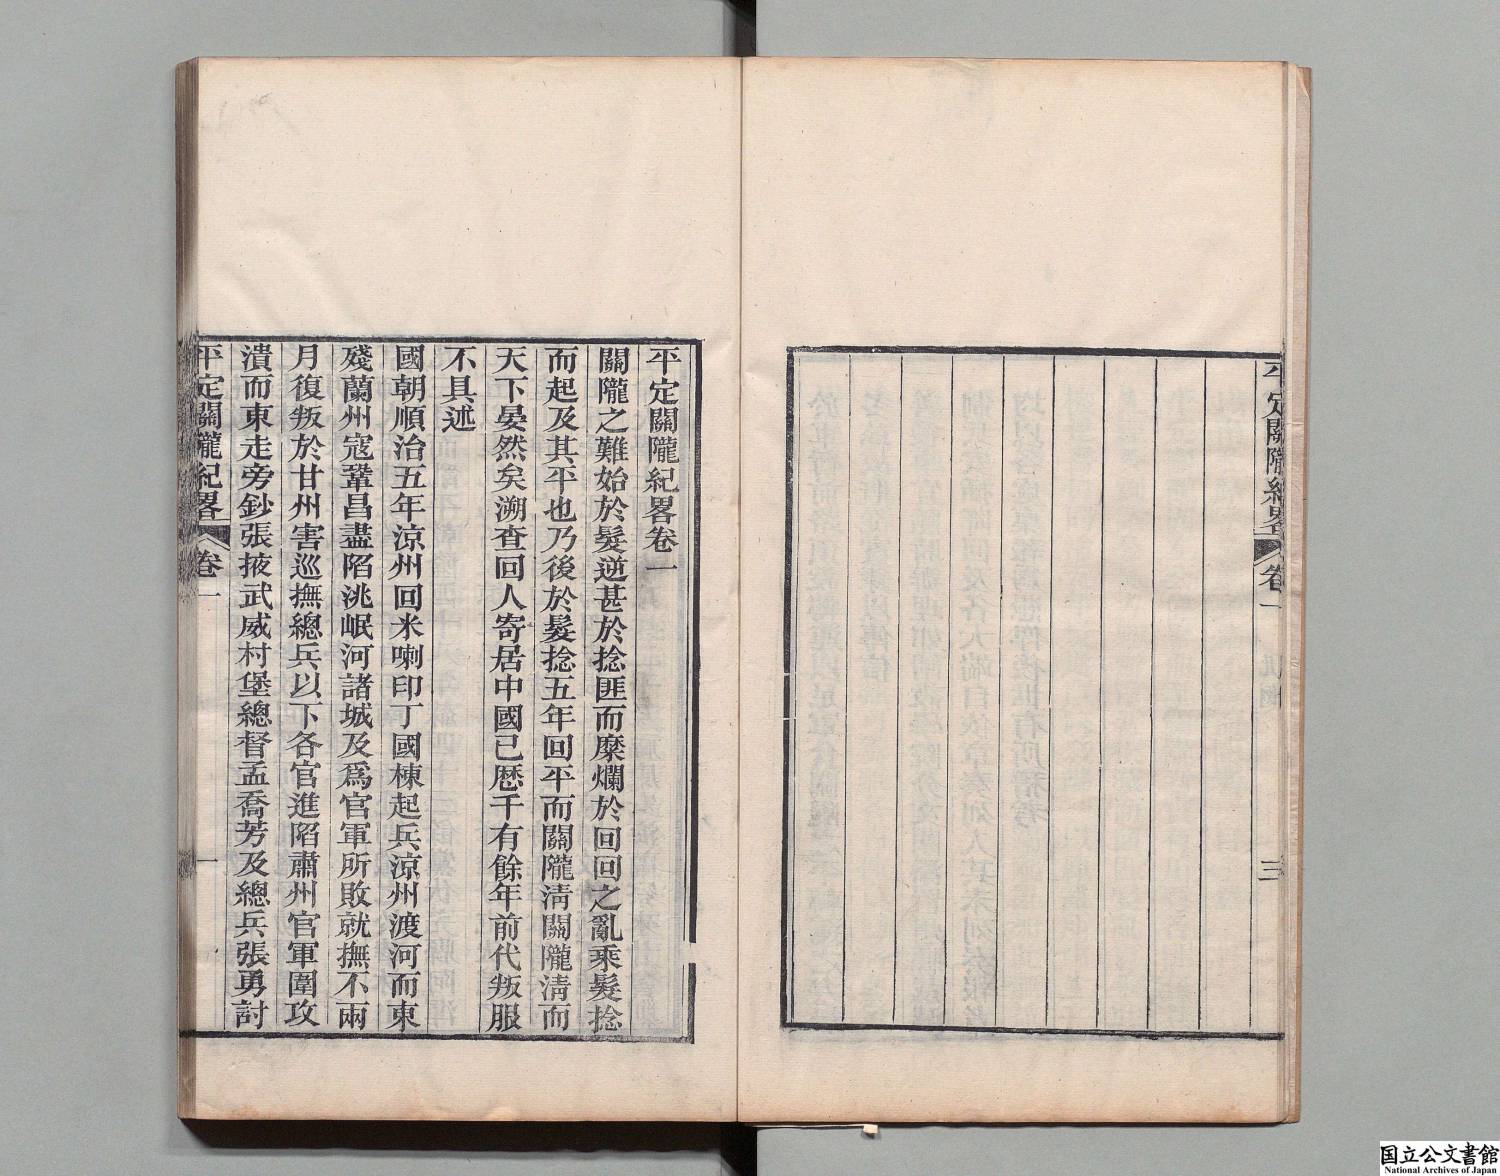 平定關隴紀畧
卷一
三
平定關隴紀畧卷一
關隴之難始於髮逆甚於捻匪而糜爛於回回之亂乘髮捻
而起及其平也乃後於髮捻五年回平而關隴淸關隴淸而
天下晏然矣溯查回人寄居中國已歷千有餘年前代叛服
不具述
國朝順治五年涼州回米喇印丁國棟起兵涼州渡河而東
殘蘭州寇鞏昌盡陷洮岷河諸城及爲官軍所敗就撫不兩
月復叛於甘州害巡撫總兵以下各官進陷肅州官軍圍攻
潰而東走旁鈔張掖武威村堡總督孟喬芳及總兵張勇討
平定關隴紀畧
卷一
一
国立公文書館
National Archives of Japan